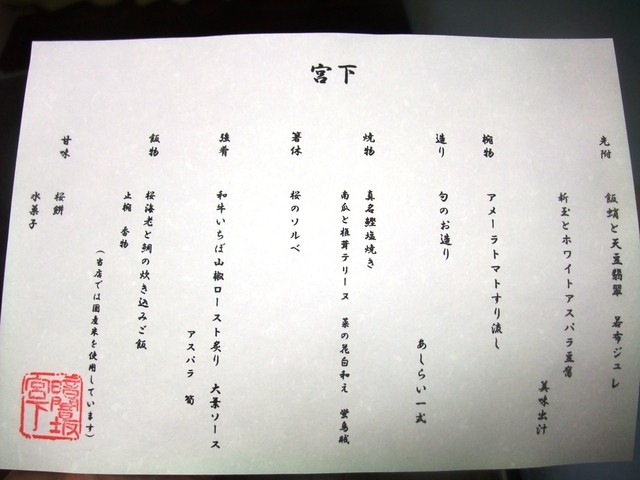 宮下
先附 飯蛸と天豆翡翠 若布ジュレ
新玉とホワイトアスパラ豆腐 美味出汁
椀物 アメーラトマトすり流し
造り 旬のお造り あしらい一式
焼物 真名鰹塩焼き
南瓜と椎茸テリーヌ 菜の花白和え 蛍烏賊
箸休 桜のソルベ
強肴 和牛いちぼ山椒ロースト炙り 大葉ソース
アスパラ 筍
飯物 桜海老と鯛の炊き込みご飯
止椀 香物
(当店では国産米を使用しています)
甘味 桜餅
水菓子
宮下